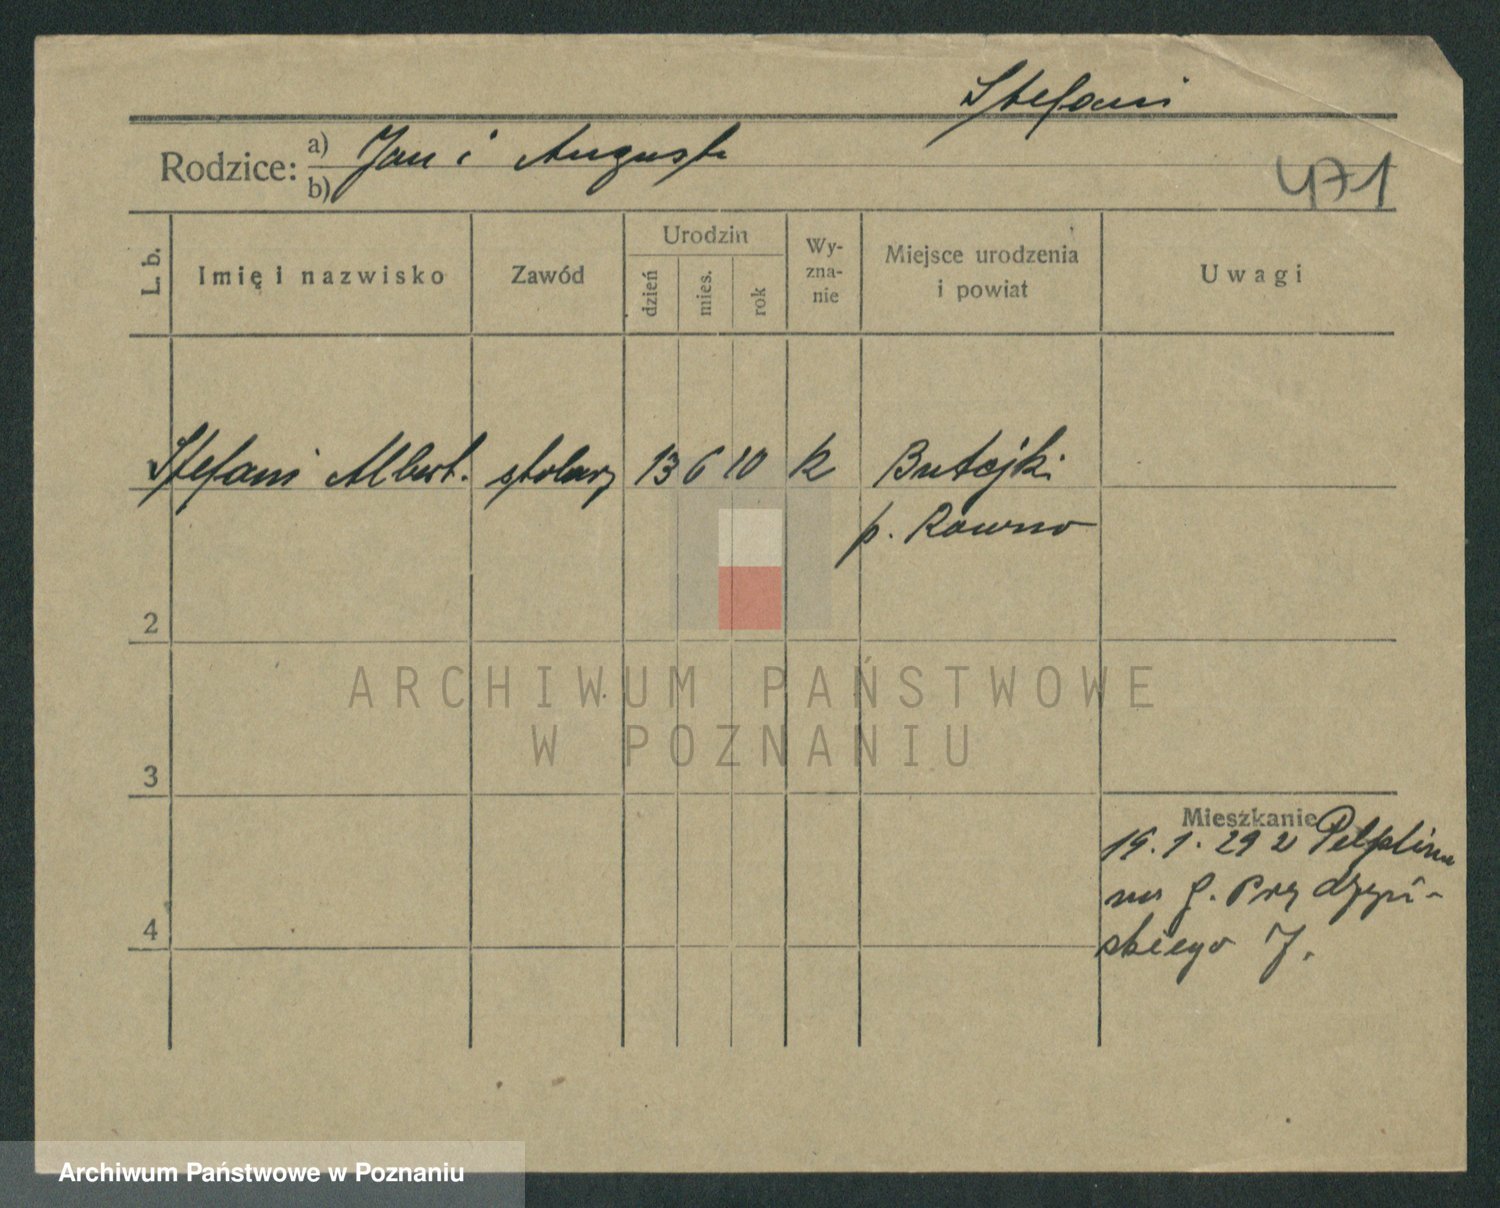 Stefani
Rodzice: a) Jan i Augusta
b)
471
L. b.
Imię i nazwisko
Zawód
Urodzin
dzień
mies.
rok
Wy-
zna-
nie
Miejsce urodzenia
i powiat
Uwagi
Stefani Albert. stolarz 13 6 10 k Butejki
p. Rowno
2
3
4
Mieszkanie
19. 1. 29 z Pelplina
na
skiego J.
ARCHIWUM PAŃSTWOWE
W POZNANIU
Archiwum Państwowe w Poznaniu